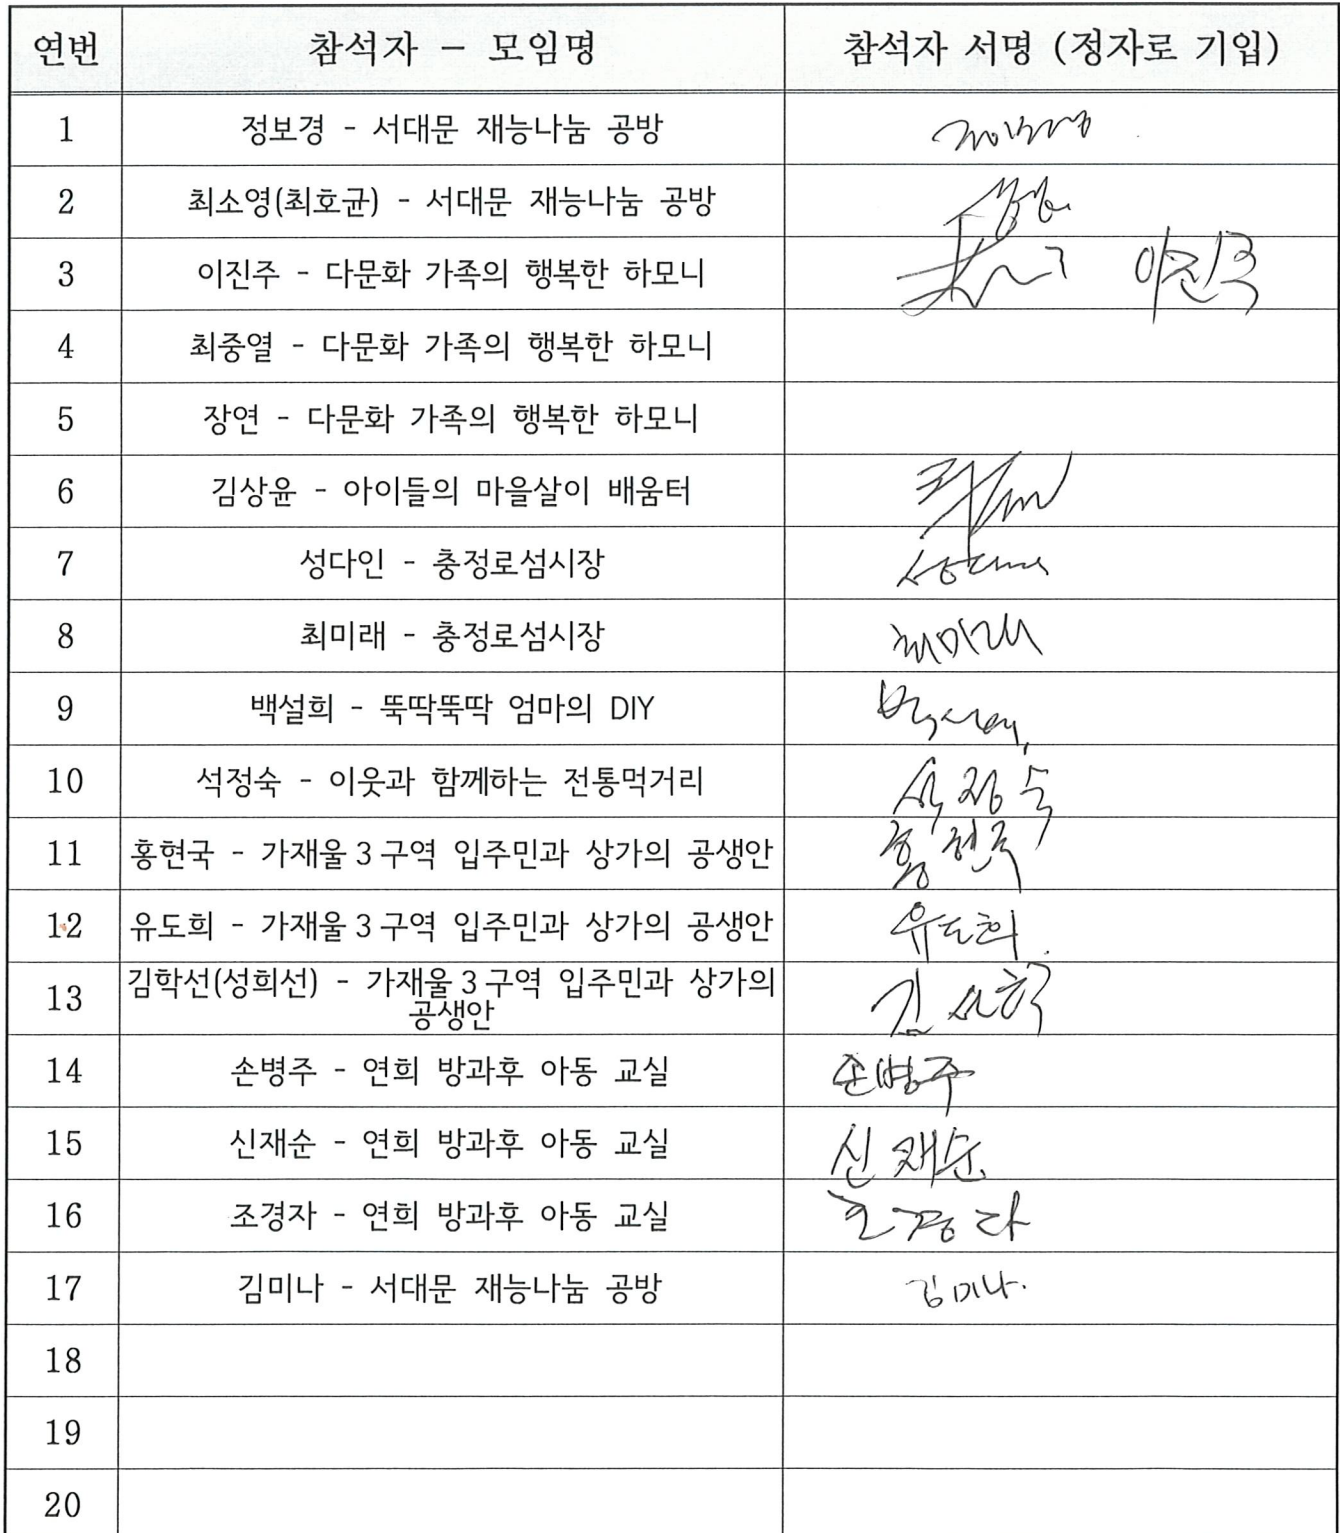 연번 참석자 - 모임명 참석자 서명 (정자로 기입)
1 정보경 - 서대문 재능나눔 공방
2 최소영(최호균) - 서대문 재능나눔 공방
3 이진주 - 다문화 가족의 행복한 하모니
4 최중열 - 다문화 가족의 행복한 하모니
5 장연 - 다문화 가족의 행복한 하모니
6 김상윤 - 아이들의 마을살이 배움터
7 성다인 - 충정로섬시장 성다인
8 최미래 - 충정로섬시장 최미래
9 백설희 - 뚝딱뚝딱 엄마의 DIY
10 석정숙 - 이웃과 함께하는 전통먹거리 석정숙
11 홍현국 - 가재울 3 구역 입주민과 상가의 공생안 홍현국
12 유도희 - 가재울 3 구역 입주민과 상가의 공생안 유도희
13 김학선(성희선) - 가재울 3 구역 입주민과 상가의
공생안
14 손병주 - 연희 방과후 아동 교실 손병주
15 신재순 - 연희 방과후 아동 교실 신재순
16 조경자 - 연희 방과후 아동 교실 조경자
17 김미나 - 서대문 재능나눔 공방 김미나.
18
19
20